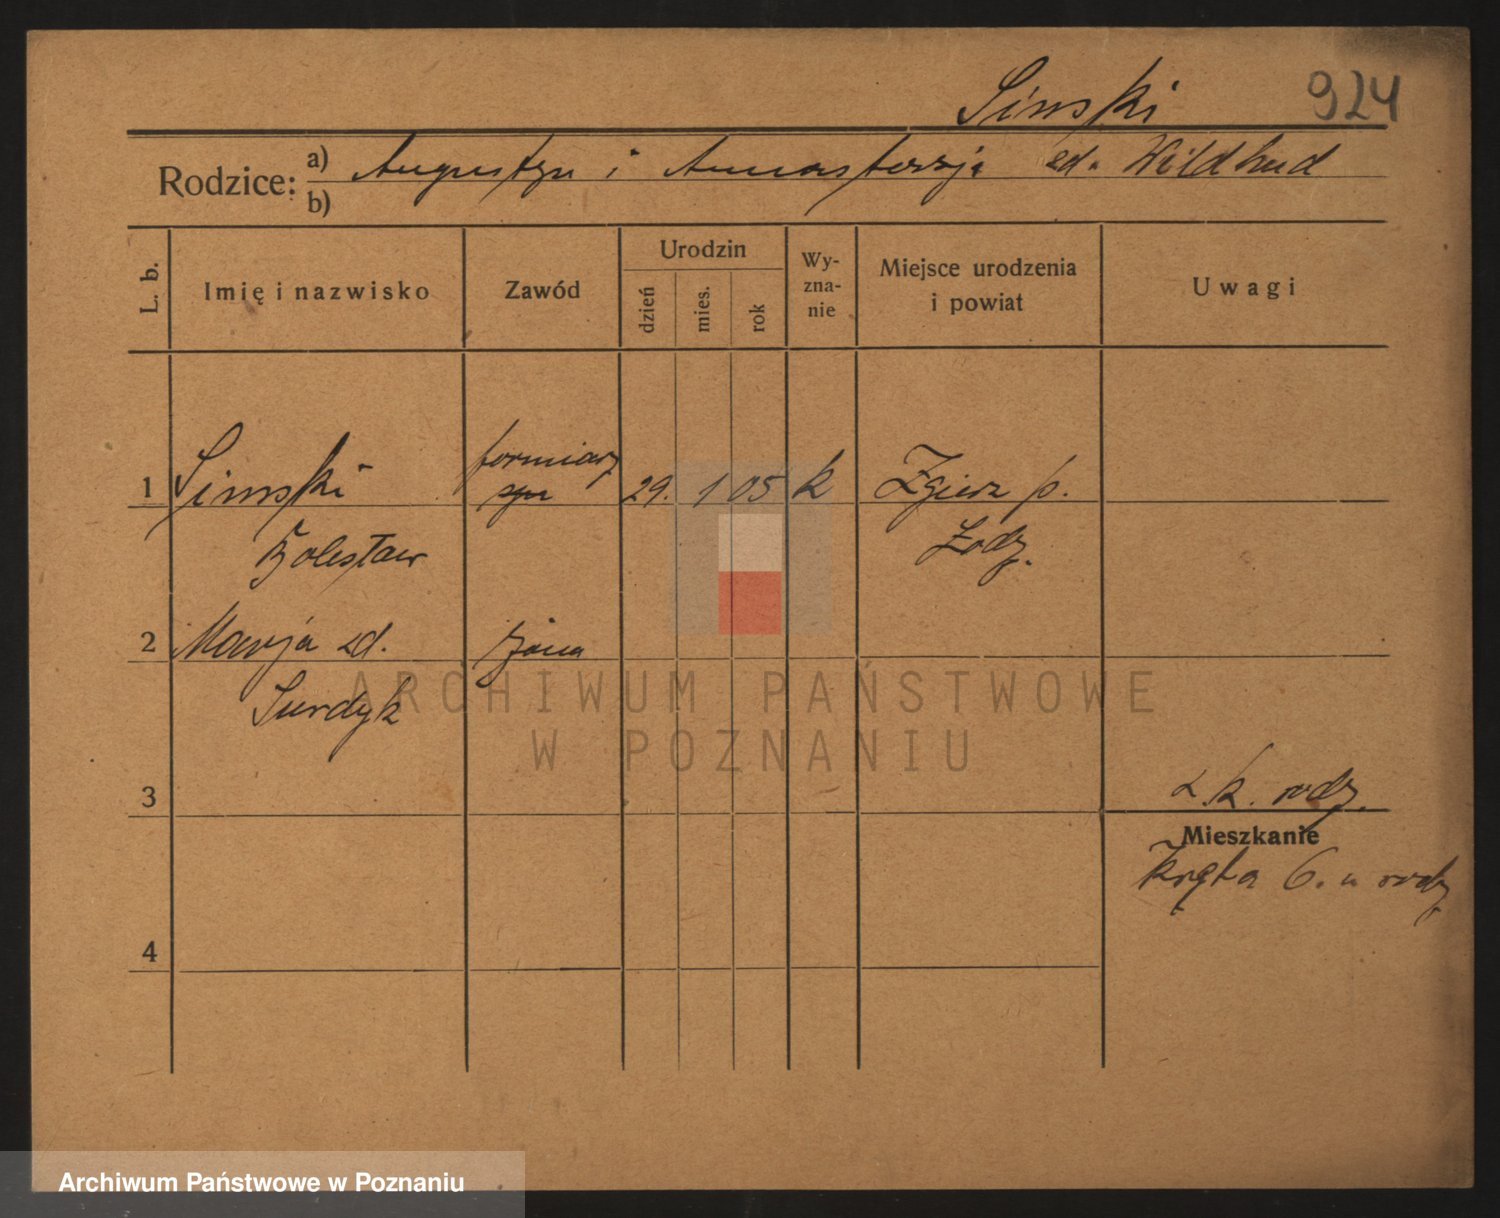 Simski 924
Rodzice: a) Augustyn i Annastazja zd. Wildhud
b)
L. b. Imię i nazwisko Zawód Urodzin dzień mies. rok Wyzna-nie Miejsce urodzenia i powiat Uwagi
formiarz
1 Simski syn 29. 1 05 k Zgierz p.
Bolesław Łodz.
2 Marja zd. żona
Surdyk
ARCHIWUM PAŃSTWOWE
W POZNANIU
3 z k. rodz.
Mieszkanie
Kręta 6. u rodz
4
Archiwum Państwowe w Poznaniu